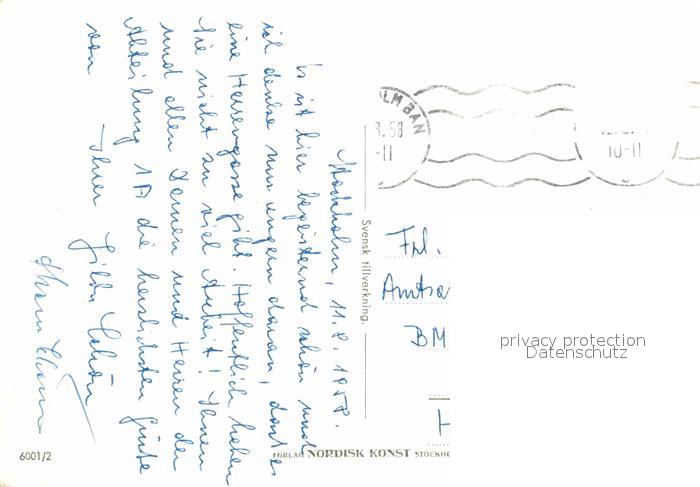 Stockholm, 11.8.1958.
Es ist hier begeisternd schön und
ich denke nur ungern daran, dass es
eine Herrengasse gibt. Hoffentlich haben
Sie nicht zu viel Arbeit! Ihnen
und allen Damen und Herren der
Abteilung 1A die herzlichsten Grüße
von
Ihrer
Svensk tillverkning.
LM BAN
8.58
-11
10-11
Frl.
Amtsr
BM
H
privacy protection
Datenschutz
6001/2
FÖRLAG NORDISK KONST STOCKHO